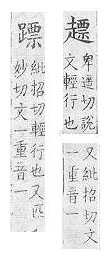 𧽤
卑遥切説
文輕行也
又紕招切文
一重音一
𨄏
紕招切輕行也又匹
妙切文一重音一